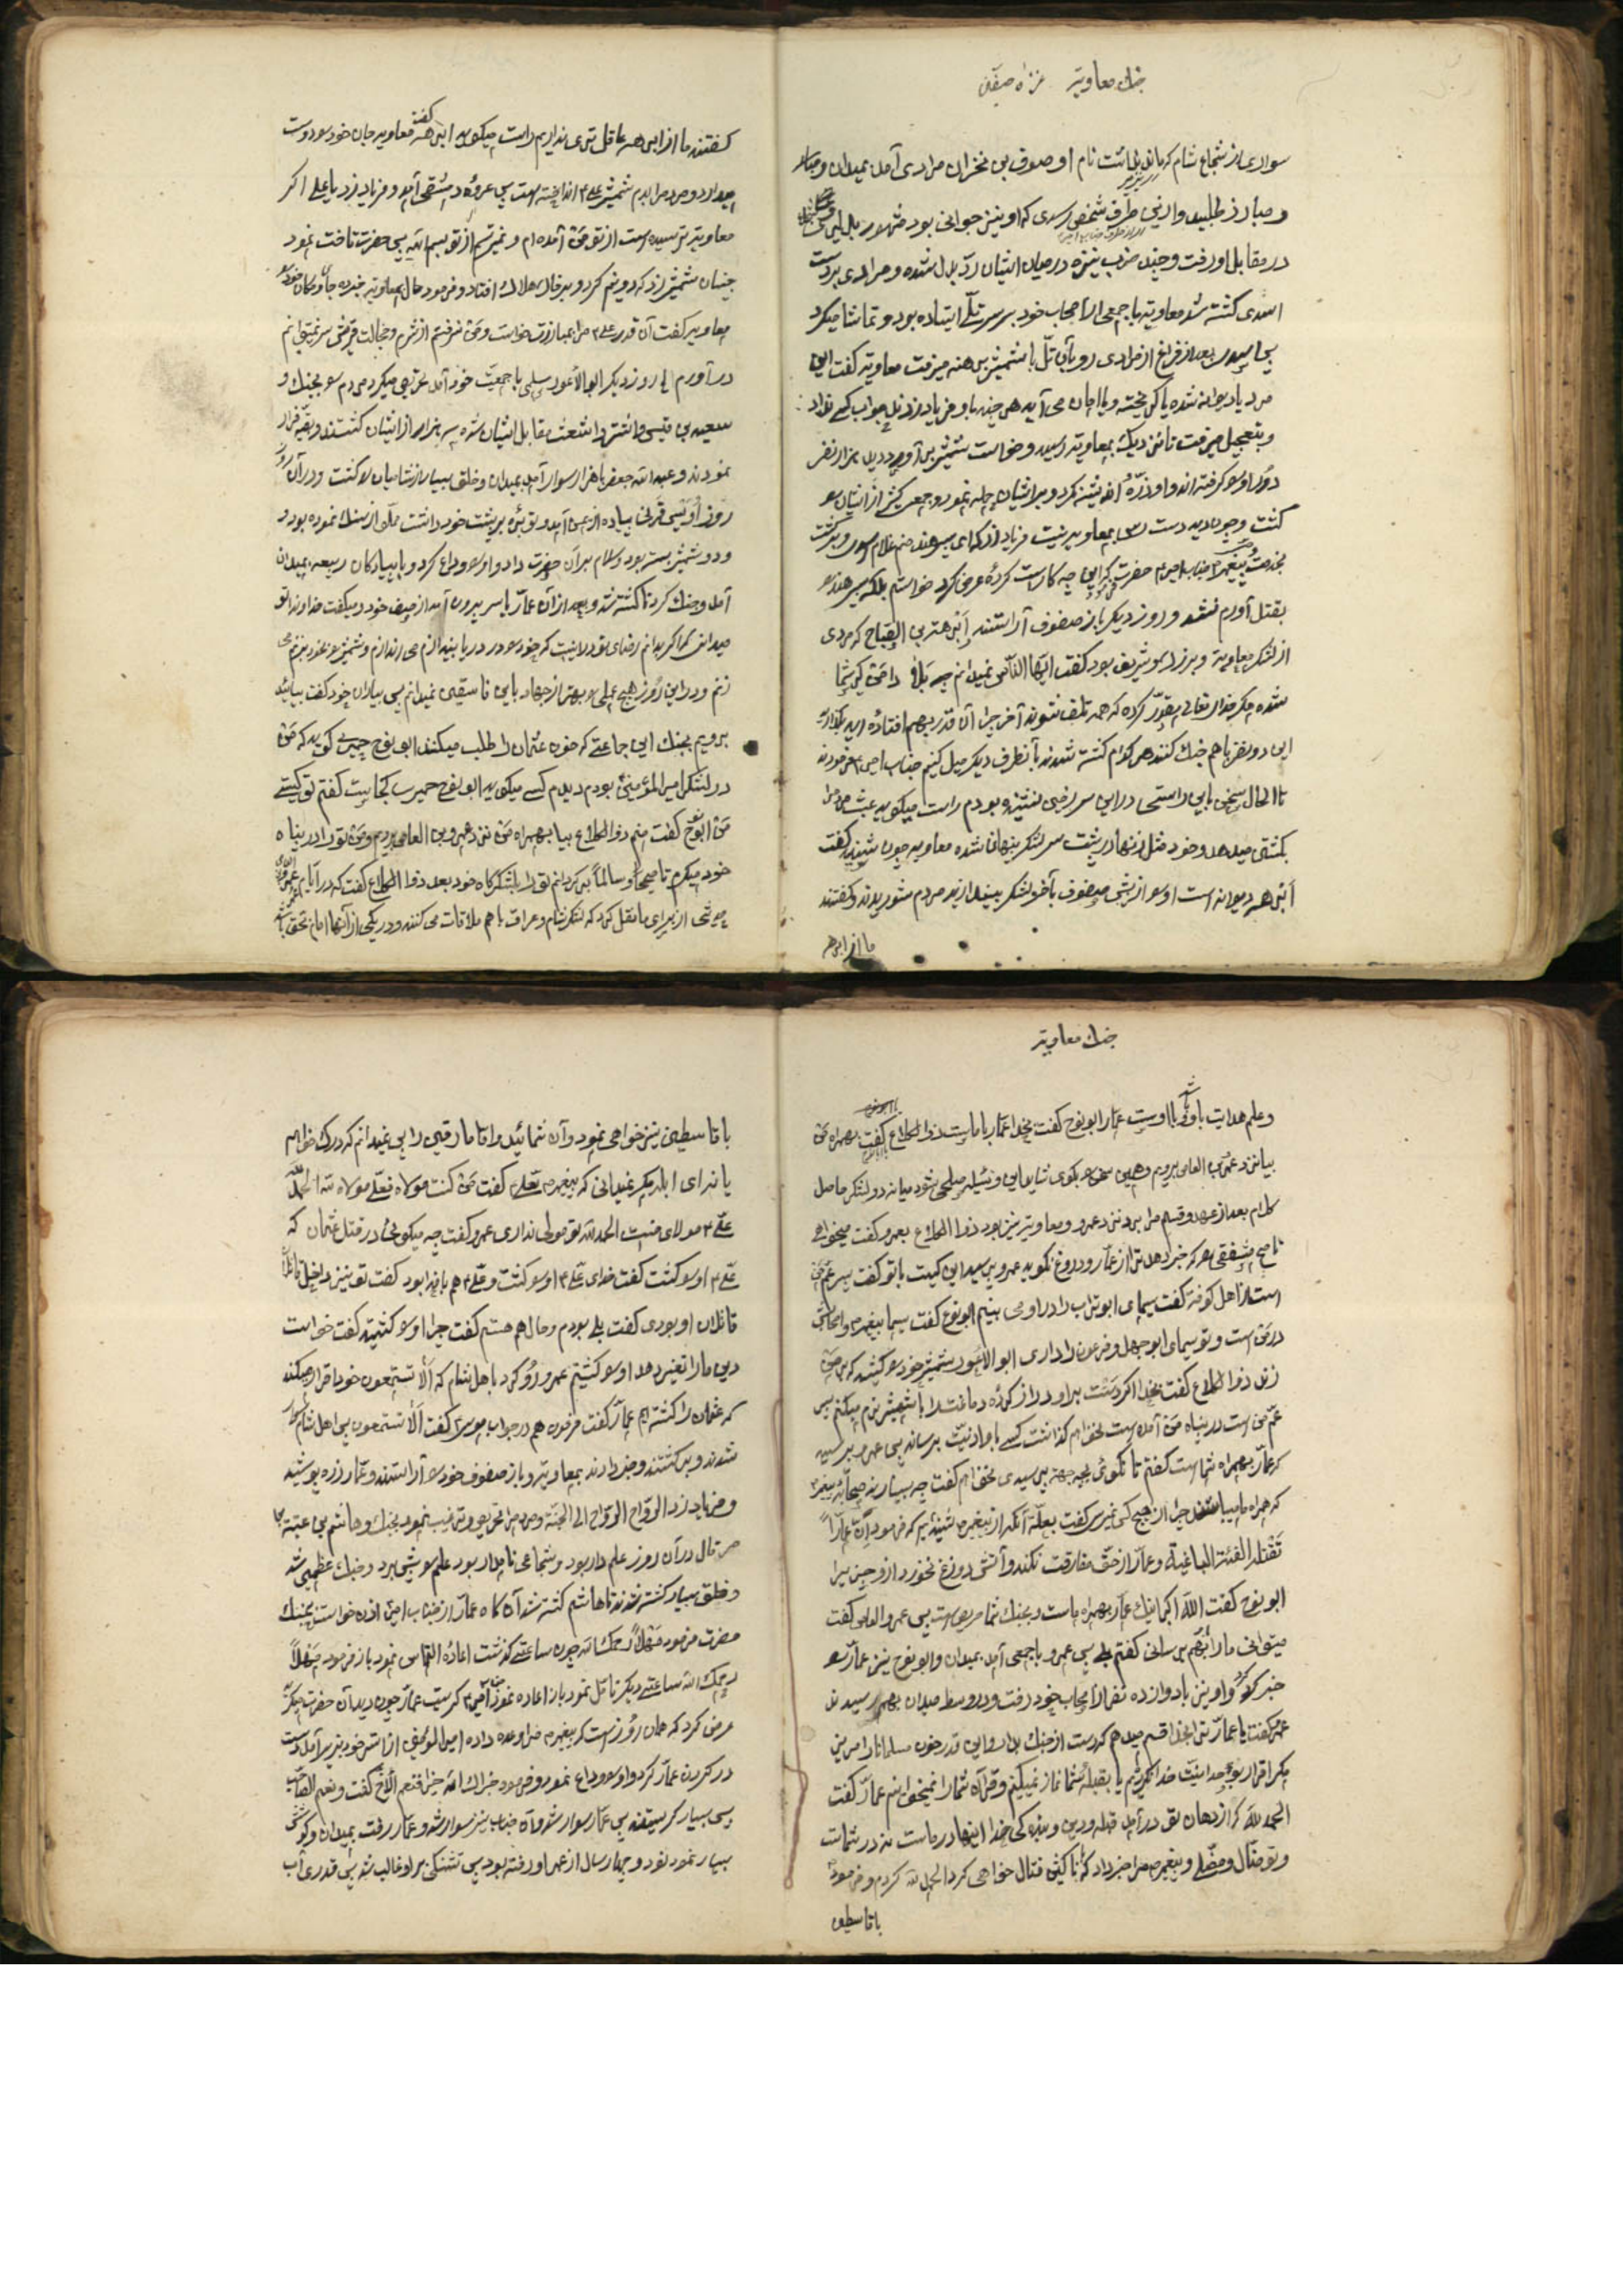 جنك معاويه غزاه صفين
سواری از شجاع شام که نام او صوف بن مرادی آمد بمیدان
و مبارز طلبید و از این طرف شخص اسدی که او نیز جوانی بود مشهور
در مقابل او رفت و چند ضرب نیزه در میان ایشان ردّ بدل شده و مرادی بر دست
اسدی کشته شد معاویه با جمعی از اصحاب خود بر سر تلّی ایستاده بود و تماشا میکرد
پس اسدی بعد از فراغ از مرادی رو بآن تلّ با شمشیر برهنه میرفت معاویه کفت این
مرد یا دیوانه شده یا کریخته و یا امان می آید هر چند باو فریاد زدند جواب کسی نداد
و بتعجیل میرفت تا نزدیک بمعاویه رسید و خواست شمشیر بر آورد دید هزار نفر
دور او را کرفته اند و او بر ایشان حمله نمود و جمعی کثیر از ایشان را
کشت و چون دید دست رس بمعاویه نیست فریاد زد که ای پسر هند منم غلام اسود و برکشت
بخدمت حضرت امیر حضرت فرمود این چه کار است کردهٔ عرض کرد خواستم بلکه پسر هند را
بقتل آورم نشد و روز دیکر باز صفوف آراستند ابرهة بن الصباح که مردی
از لشکر معاویه و بزرك و شریف بود کفت ایها الناس نمیدانم چه بلا دامن کیر شما
شده مکر خدای تعالی مقدّر کرده که همه تلف شوند آخر چرا آن قدر بهم افتاده اید بکذارید
این دو نفر با هم جنك کنند هر کدام کشته شدند بآنطرف دیکر میل کنیم جناب امیر ع فرمودند
تا الحال سخنی باین راستی در این سر زمین نشنیده بودم راست میکوید عبث مردم را
بکشتن میدهد و خود مثل زنها در پشت سر لشکر پنهان شده معاویه چون شنید کفت
ابرهه دیوانه است او را از پیش صفوف بآخر لشکر بیندازید مردم شوریدند و کفتند
ما از ابرهه
کفتند ما از ابرهه عاقل تری نداریم راست میکوید ابرهه کفت معاویه جان خود را دوست
میدارد و مردم را بدم شمشیر علی ع انداخته است پس عروهٔ دمشقی آمد و فریاد زد یا علی اکر
معاویه ترسیده است از تو من آمده ام و نمیترسم از تو بسم الله پس حضرت تاخت نمود
چنان شمشیر زد که دو نیم کرد و بر خاک هلاك افتاد و فرمود حال بمعاویه خبر ده
معاویه کفت آن قدر علی ع مرا بمبارزت خواست و من نرفتم از شرم و خجالت قریش سر نمیتوانم
در آورم الی روز دیکر ابو الاعور سلمی با جمعیّت خود آمد تحریص میکرد مردم را بجنك و
سعید بن قیس و اشتر و اشعث مقابل ایشان شده سه هزار از ایشان کشتند و بقیّه فرار
نمودند و عبد الله جعفر با هزار سوار آمد بمیدان و خلق بسیار از شامیان را کشت و در آن روز
روز اویس قرنی پیاده از یمن آمد و توبره بر پشت خود داشت مملو از سنك نموده بود و
و دو شمشیر بسته بود و سلام بر آن حضرت داد و او را وداع کرد و با پیادکان ربیعه بمیدان
آمد و جنك کرد تا کشته شد و بعد از آن عمّار یاسر بیرون آمد از صف خود و میکفت خداوندا تو
میدانی که اکر بدانم رضای تو در اینست که خود را در دریا بیندازم می اندازم و شمشیر
زنم و در این روز هیچ عملی را بهتر از جهاد باین فاسقین نمیدانم پس بیاران خود کفت بیائید
برویم بجنك این جماعتی که خون عثمان را طلب میکنند ابو نوح حمیری کوید که من
در لشکر امیر المؤمنین بودم دیدم کسی میکوید ابو نوح حمیری کجا است کفتم تو کیستی
من ابو نوح کفت منم ذوالکلاع بیا بهمراه من نزد عمرو بن العاص برویم و من تو را در پناه
خود میکیرم تا صحیحا و سالماً بر کردانم تو را بلشکرگاه خود بعد ذوالکلاع کفت که در ایّام عمر
روزی از برای ما نقل کرد که لشکر شام و عراق با هم ملاقات می کنند و در یکی از آنها امام بحق باشد
جنك معاویه
و علم هدایت با وی با اوست عمّار ابو نوح کفت بخدا عمّار با ما است ذوالکلاع کفت بهمراه من
بیا نزد عمرو بن العاص برویم و همین سخن را بکوی شاید باین وسیله صلحی شود میانه دو لشکر حاصل
کلام بعد از عهد و قسم مرا برد نزد عمرو و معاویه نیز بود ذوالکلاع بعمرو کفت میخواهی
ناصح مشفقی را که خبر دهد ترا از عمّار و دروغ نکوید عمرو پرسید این کیست با تو کفت پسر عمّ من
است از اهل کوفه کفت سیمای ابو تراب را در او می بینم ابو نوح کفت سیما پیغمبر و اصحابش
در من است و تو سیمای ابو جهل و فرعون را داری ابو الاعور شمشیر خود را کشید که مرا
زند ذوالکلاع کفت بخدا اکر دست بر او دراز کردهٔ دماغت را با شمشیر نرم میکنم پسر
عمّ من است در پناه من آمده است نخواهم کذاشت کسی باو اذیّت برساند پس عمرو پرسید
که عمّار بهمراه شما است کفتم تا نکوئی بچه جهة پرسیدی نخواهم کفت چه بسیارند صحابه پیغمبر
که همراه ما میباشند چرا از هیچ کس نمی پرسی کفت بعلّت آنکه از پیغمبر شنیدیم که فرمود إنّ عمّاراً
تقتله الفئة الباغیة و عمّار از حقّ مفارقت نکند و آتش دوزخ نخورد از او چیزیرا
ابو نوح کفت الله اکبر اینک عمّار بهمراه ما است و بجنك شما حریص است پس عمرو العاص کفت
میتوانی ما را بهم برسانی کفتم بلی پس عمرو با جمعی آمد بمیدان و ابو نوح نیز عمّار را
خبر کرد و او نیز با دوازده نفر از اصحاب خود رفت و در وسط میدان بهم رسیدند
عمرو کفت یا عمّار ترا بخدا قسم میدهم که دست از جنك بدار و این قدر خون مسلمانان را مریز
مکر اقرار بوحدانیّت خدا نکردیم یا بقبله شما نماز نمیکنیم و قرآن شما را نمیخوانیم عمّار کفت
الحمد لله که از دهان تو در آمد قبله و دین و بندکی خدا اینها در ماست نه در شماست
و تو ضال و مضلّی و پیغمبر مرا خبر داد که با ناکثین قتال خواهی کرد الحمد لله کردم و فرمود
با قاسطین
با قاسطین نیز خواهی نمود و آن شمائید و اما مارقین را پس نمیدانم که درك خواهم
یا نه ای ابله مکر نمیدانی که پیغمبر بعلی ع کفت من کنت مولاه فعلی مولاه الحمد لله
علی ع مولای منست الحمد لله تو مولی نداری عمرو کفت چه میکوئی در قتل عثمان که
علی ع او را کشت کفت خدای علی ع او را کشت و علی ع هم با خدا بود کفت تو نیز داخل
قاتلان او بودی کفت بلی بودم و حال هم هستم کفت چرا او را کشتید کفت خواست
دین ما را تغییر دهد او را کشتیم عمرو رو کرد باهل شام که ألا تستمعون خود اقرار میکند
که عثمان را کشته ایم عمّار کفت فرعون هم در جواب موسی کفت ألا تستمعون پس اهل شام سوار
شدند و بر کشتند و خبر دادند بمعاویه و باز صفوف خود را آراستند و عمّار زره پوشید
و فریاد زد الرّواح الرّواح الی الجنّة و مردم را تحریص و ترغیب نمود بجنك و هاشم بن عتبه
مرقال در آن روز علم دار بود و شجاعی نامدار بود علم را پیش برد و جنك عظیمی شد
و خلق بسیار کشته شدند تا هاشم کشته شد آن کاه عمّار از جناب امیر اذن خواست بجنك
حضرت فرمود مهلاً رحمك الله چون ساعتی کذشت اعادهٔ التماس نمود باز فرمود مهلاً
رحمك الله ساعتی دیکر تأمّل نمود باز اعاده نمود جناب امیر ع کریست عمّار چون دید آن حضرت میکرید
عرض کرد که همان روز است که پیغمبر مرا وعده داده امیر المؤمنین از استر خود بزیر آمد و دست
در کردن عمّار کرد و او را وداع نمود و فرمود جزاك الله خیرا فنعم الأخ کفت و نعم الصاحب
پس بسیار کریستند پس عمّار سوار شد و آن جناب نیز سوار شد و عمّار رفت بمیدان و کوشش
بسیار نمود نود و چهار سال از عمر او رفته بود پس تشنکی بر او غالب شد پس قدری آب